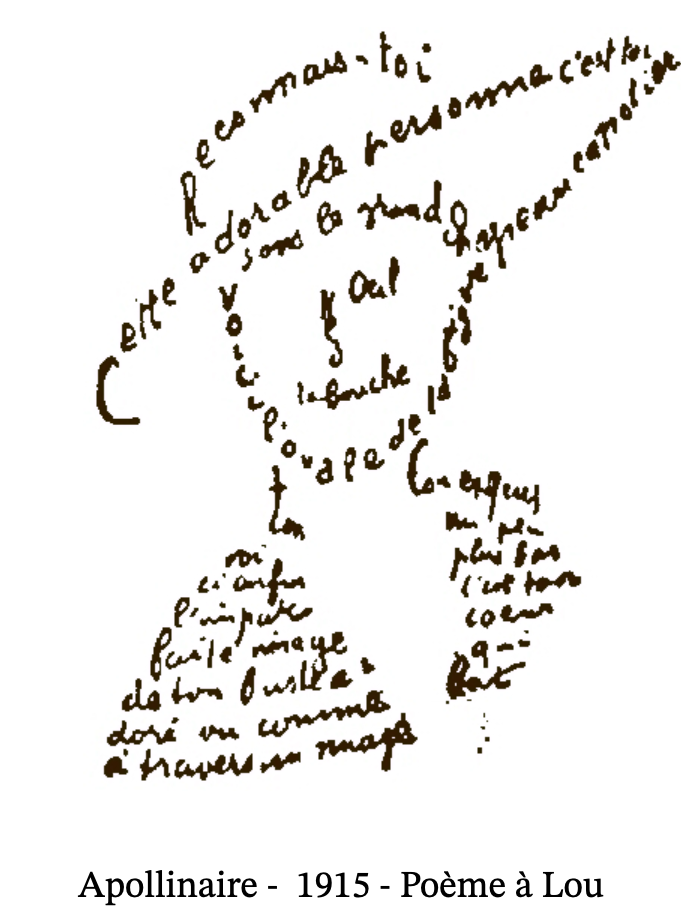 Reconnais-toi
Cette adorable personne c'est toi
sous le grand chapeau canotier
Oeil
Nez
la bouche
Voici l'ovale de ta figure
ton
Cou exquis
voi
ci enfin
l'impar
faite image
de ton buste a
doré vu comme
à travers un nuage
un peu
plus bas
c'est ton
coeur
qui
bat
Apollinaire - 1915 - Poème à Lou